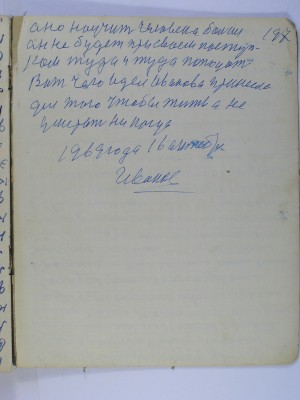 ано научит человека
ан не будет при своем поступ-
Кам туда и туда попадат
Вот чаго идея Иванова принесла
для того чтобы жить а не
умират никогда
1969 года 16
Иванов
197